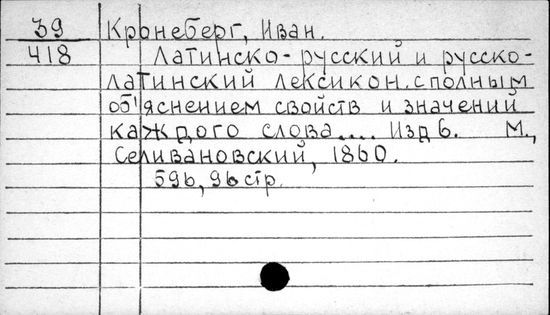 39 Кронеберг, Иван.
418 Латинско-русский и русско-
латинский лексикон. с полным
об'яснением свойств и значений
каждого слова.... Изд 6. М.,
Селивановский, 1860.
596, 96 стр.